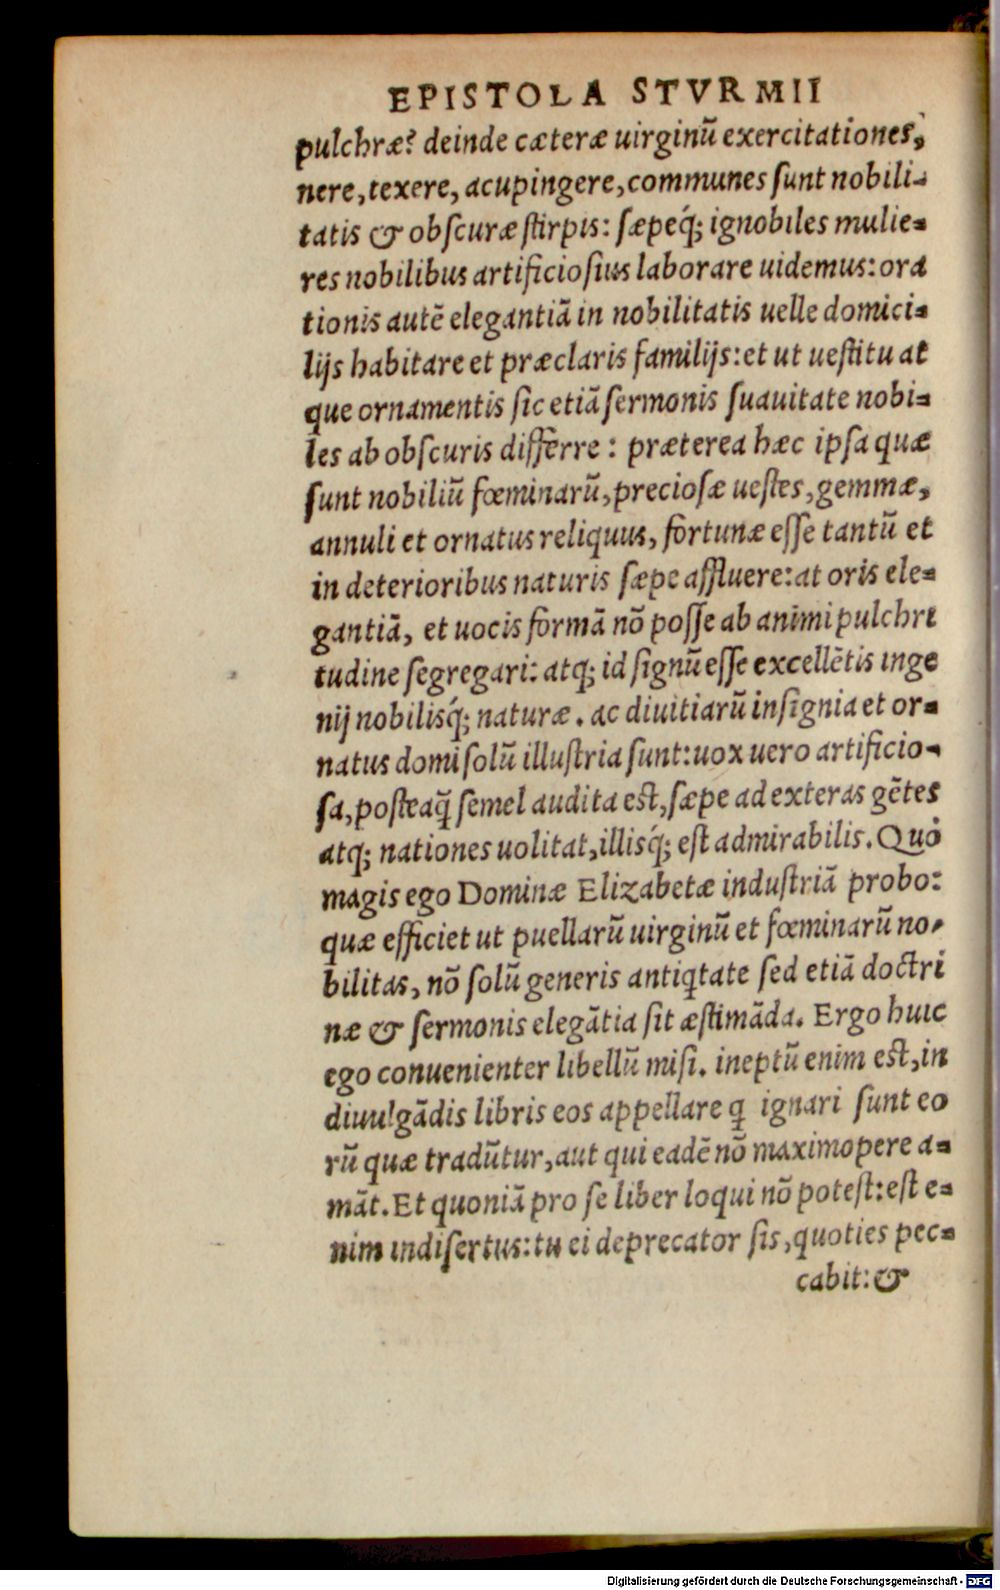 EPISTOLA STVRMII
pulchræ? deinde cæteræ uirginũ exercitationes,
nere, texere, acupingere, communes ſunt nobili-
tatis & obſcuræ ſtirpis: ſæpeq́; ignobiles mulie-
res nobilibus artificioſius laborare uidemus: ora
tionis autẽ elegantiã in nobilitatis uelle domici-
lijs habitare et præclaris familijs: et ut ueſtitu at
que ornamentis ſic etiã ſermonis ſuauitate nobi-
les ab obſcuris differre : præterea hæc ipſa quæ
ſunt nobiliũ fœminarũ, precioſæ ueſtes, gemmæ,
annuli et ornatus reliquus, fortunæ eſſe tantũ et
in deterioribus naturis ſæpe affluere: at oris ele-
gantiã, et uocis formã nõ poſſe ab animi pulchri
tudine ſegregari: atq; id ſignũ eſſe excellẽtis inge
nij nobilisq́; naturæ. ac diuitiarũ inſignia et or-
natus domi ſolũ illuſtria ſunt: uox uero artificio-
ſa, poſteaq̃ ſemel audita eſt, ſæpe ad exteras gẽtes
atq; nationes uolitat, illisq́; eſt admirabilis. Quò
magis ego Dominæ Elizabetæ induſtriã probo:
quæ efficiet ut puellarũ uirginũ et fœminarũ no-
bilitas, nõ ſolũ generis antiq̃tate ſed etiã doctri
næ & ſermonis elegãtia ſit æſtimãda. Ergo huic
ego conuenienter libellũ miſi. ineptũ enim eſt, in
diuulgãdis libris eos appellare q̃ ignari ſunt eo
rũ quæ tradũtur, aut qui eadẽ nõ maximopere a-
mãt. Et quoniã pro ſe liber loqui nõ poteſt: eſt e-
nim indiſertus: tu ei deprecator ſis, quoties pec-
cabit: &
Digitalisierung gefördert durch die Deutsche Forschungsgemeinschaft - DFG